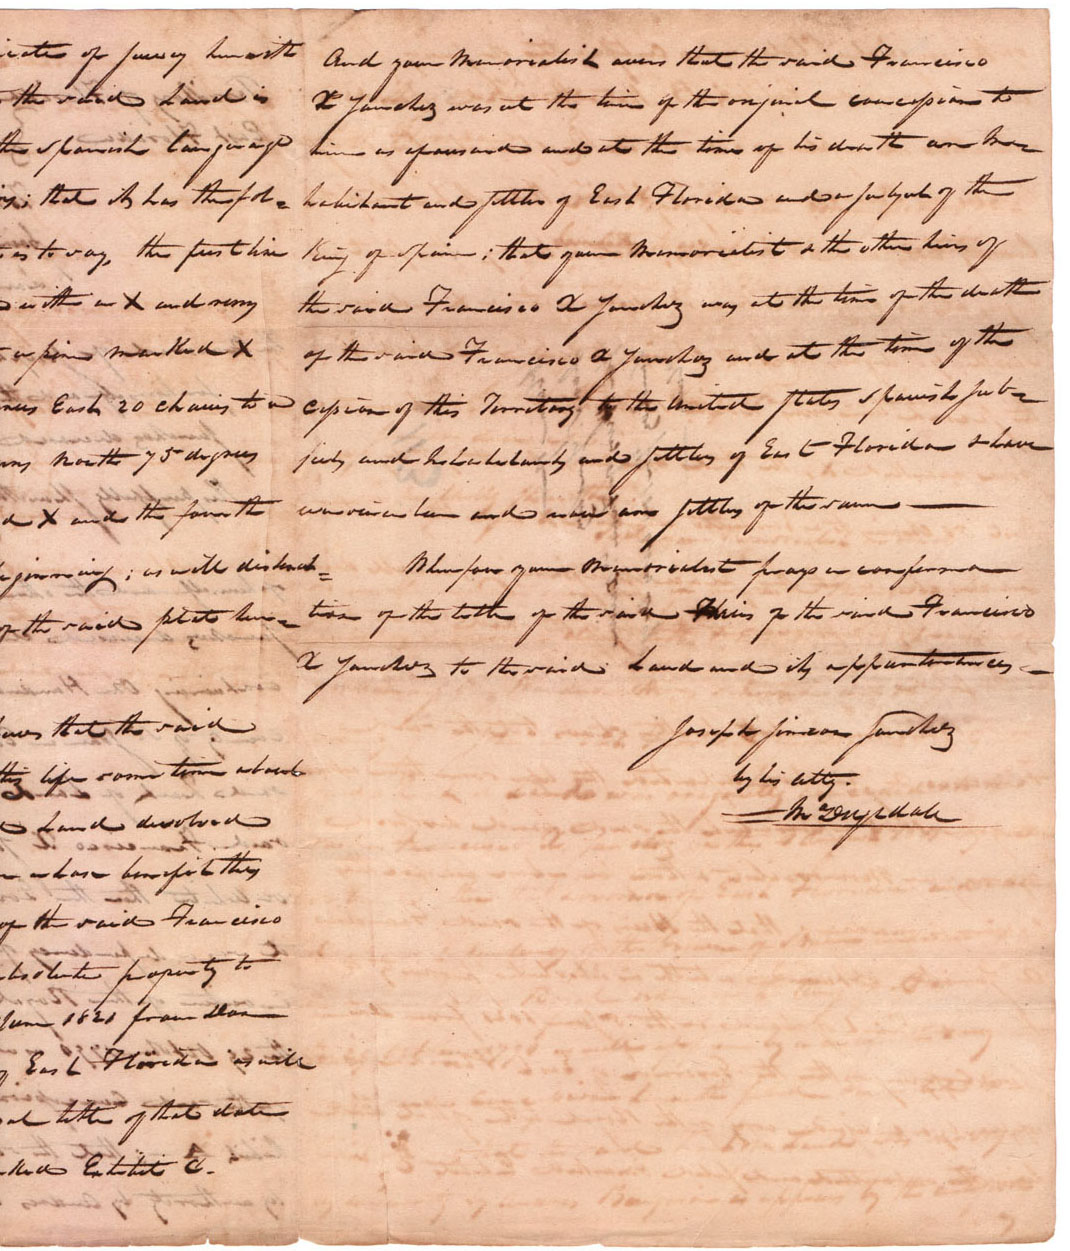 icate of survey herewith
the said Land is
the Spanish language
that it has the fol=
t is to say, the first line
with a X and runs
a pine marked X
East 20 chains to a
runs North 75 degrees
d X and the fourth
beginning; as will
of the said plat
that the said
this life some time about
Land devolved
whose benefit they
of the said Francisco
absolute property to
June 1821 from Don
of East Florida as will
title of that date
ked Exhibit C.
And your Memorialist avers that the said Francisco
X Sanchez was at the time of the original concession to
him as aforesaid and at the time of his death an In=
habitant and settler of East Florida and a subject of the
King of Spain; that your Memorialist & the other heirs of
the said Francisco X Sanchez was at the time of the death
of the said Francisco X Sanchez and at the time of the
cession of this Territory to the United States Spanish sub=
jects and Inhabitants and settlers of East Florida & have
ever since been and now are settlers of the same
Wherefore your Memorialist prays a confirma
tion of the title of the said Heirs of the said Francisco
X Sanchez to the said Land and its appurtenances
Joseph Simeon Sanchez
by his atty.
Drysdale